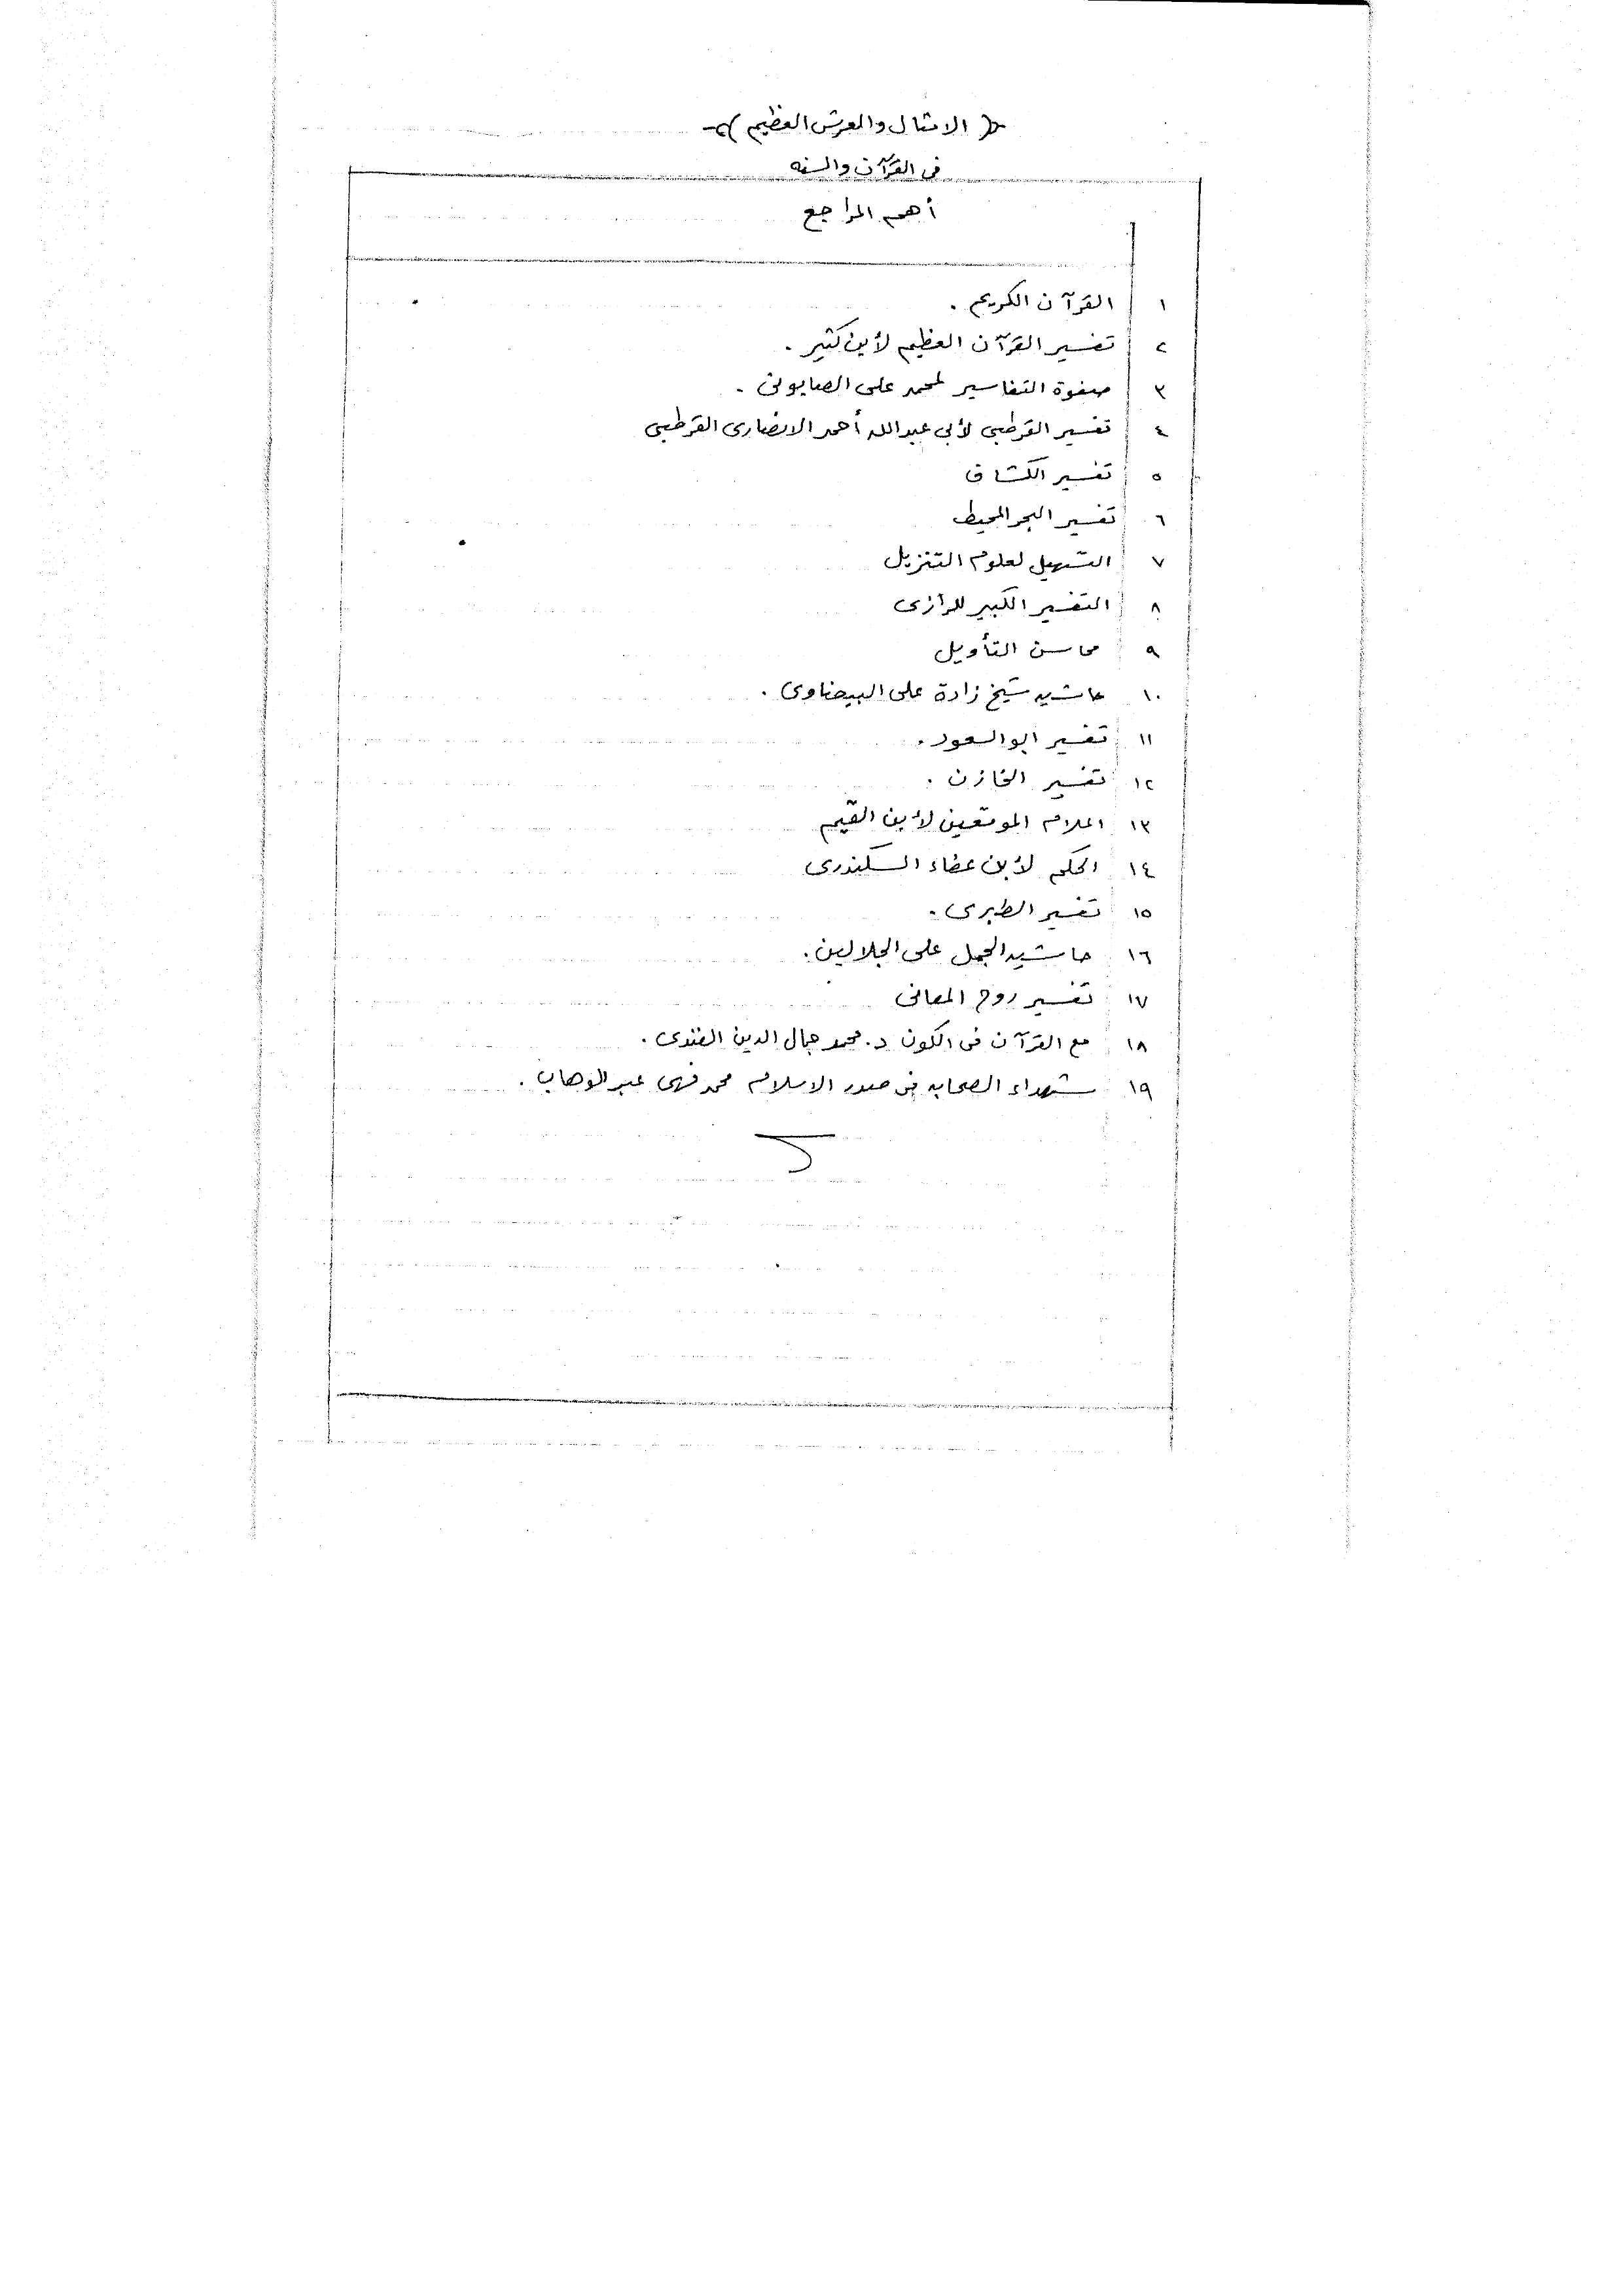 الامثال والعرش العظيم
فى القرآن والسنه
أهم المراجع
١ القرآن الكريم .
٢ تفسير القرآن العظيم لأبن كثير .
٣ صفوة التفاسير لمحمد على الصابونى .
٤ تفسير القرطبى لأبى عبدالله أحمد الانصارى القرطبى
٥ تفسير الكشاف
٦ تفسير البحر المحيط
٧ التسهيل لعلوم التنزيل
٨ التفسير الكبير للرازى
٩ محاسن التأويل
١٠ حاشيه شيخ زادة على البيضاوى .
١١ تفسير ابو السعود .
١٢ تفسير الخازن .
١٣ اعلام الموقعين لأبن القيم
١٤ الحكم لأبن عطاء السكندرى
١٥ تفسير الطبرى .
١٦ حاشيه الجمل على الجلالين .
١٧ تفسير روح المعانى
١٨ مع القرآن فى الكون د. محمد جمال الدين الفندى .
١٩ شهداء الصحابه فى صدر الاسلام محمد فهمى عبد الوهاب .